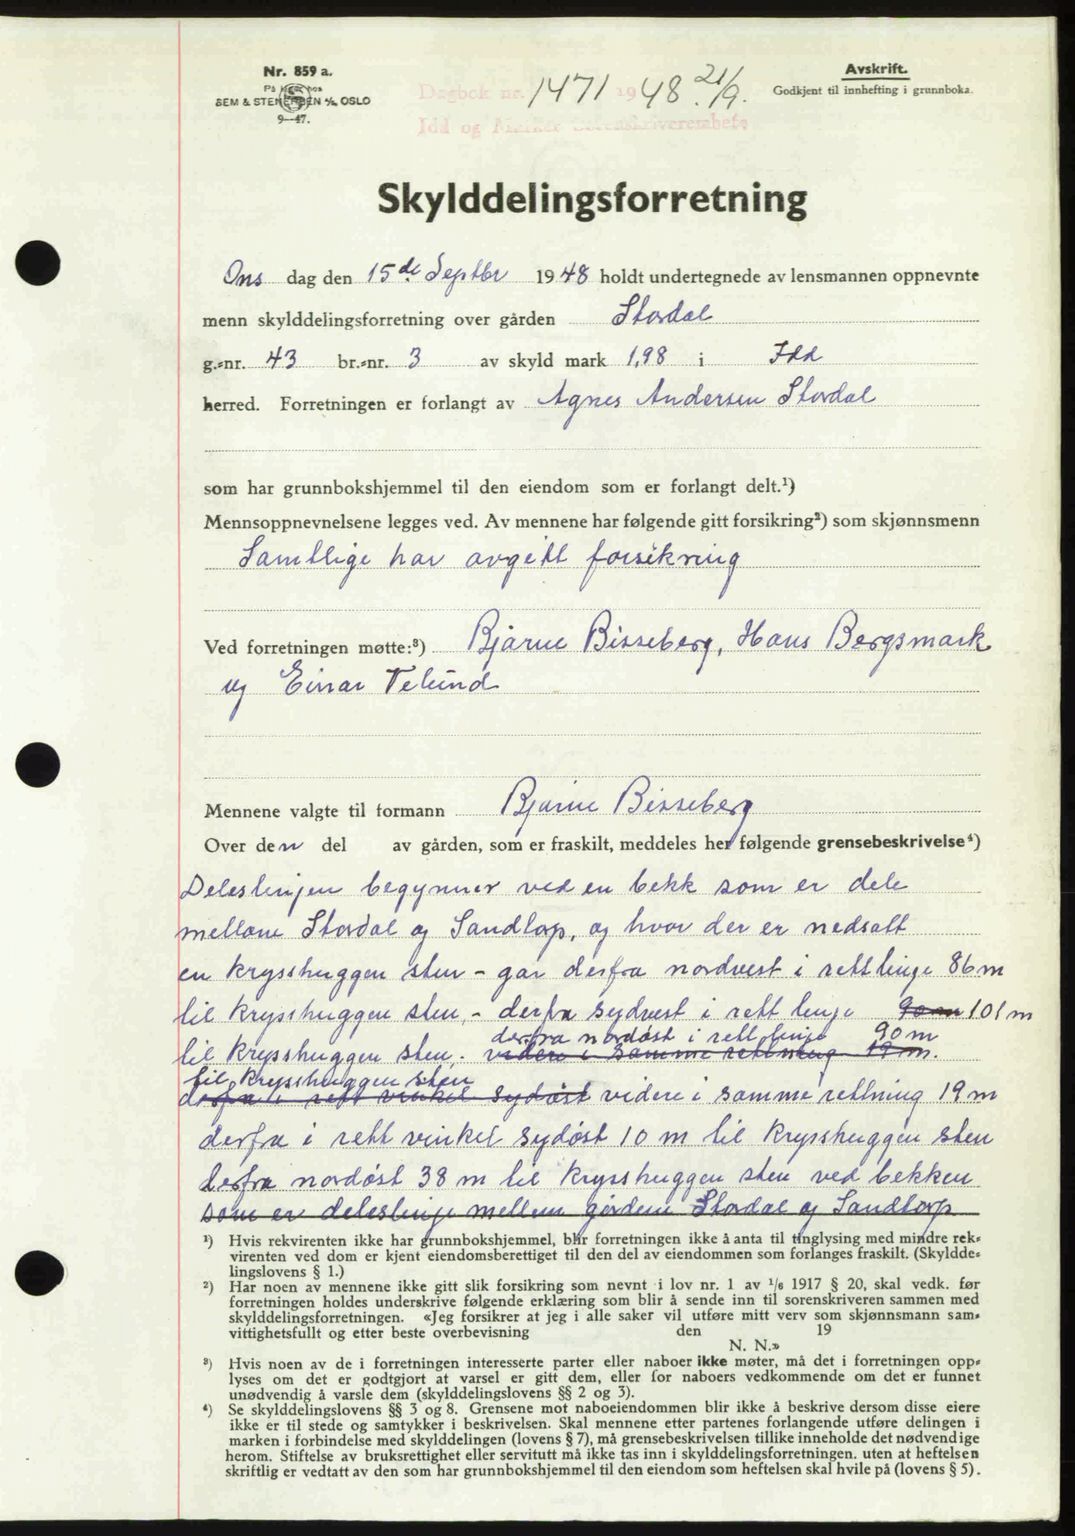 Nr. 859 a.
På lager hos
SEM & STENERSEN A/S, OSLO
9—47.
Dagbok nr. 1471 1948. 21/9.
Idd og Marker Sorenskriverembete
Avskrift.
Godkjent til innhefting i grunnboka.
Skylddelingsforretning
Ons dag den 15de Septbr 1948 holdt undertegnede av lensmannen oppnevnte
menn skylddelingsforretning over gården Stordal
g.-nr. 43 br.-nr. 3 av skyld mark 1,98 i Idd
herred. Forretningen er forlangt av Agnes Andersen Stordal
som har grunnbokshjemmel til den eiendom som er forlangt delt.¹)
Mennsoppnevnelsene legges ved. Av mennene har følgende gitt forsikring²) som skjønnsmenn
Samtlige har avgitt forsikring
Ved forretningen møtte:³) Bjarne Bisseberg, Hans Bergsmark
og Einar Velund
Mennene valgte til formann Bjarne Bisseberg
Over den del av gården, som er fraskilt, meddeles her følgende grensebeskrivelse⁴)
Deleslinjen begynner ved en bekk som er dele
mellom Stordal og Sandtorp, og hvor der er nedsatt
en krysshuggen sten - går derfra nordvest i rett linje 86 m
til krysshuggen sten, - derfra sydvest i rett linje 90 m 101 m
derfra nordøst i rett linje 90 m
til krysshuggen sten. videre i samme rettning 19 m.
til krysshuggen sten
derfra i rett vinkel sydöst videre i samme rettning 19 m
derfra i rett vinkel sydöst 10 m til krysshuggen sten
derfra nordöst 38 m til krysshuggen sten ved bekken
som er deleslinje mellem gårdene Stordal og Sandtorp
¹) Hvis rekvirenten ikke har grunnbokshjemmel, blir forretningen ikke å anta til tinglysing med mindre rek-
virenten ved dom er kjent eiendomsberettiget til den del av eiendommen som forlanges fraskilt. (Skyldde-
lingslovens § 1.)
²) Har noen av mennene ikke gitt slik forsikring som nevnt i lov nr. 1 av 1/6 1917 § 20, skal vedk. før
forretningen holdes underskrive følgende erklæring som blir å sende inn til sorenskriveren sammen med
skylddelingsforretningen. «Jeg forsikrer at jeg i alle saker vil utføre mitt verv som skjønnsmann sam-
vittighetsfullt og etter beste overbevisning den 19
N. N.»
³) Hvis noen av de i forretningen interesserte parter eller naboer ikke møter, må det i forretningen opp-
lyses om det er godtgjort at varsel er gitt dem, eller for naboers vedkommende om det er funnet
unødvendig å varsle dem (skylddelingslovens §§ 2 og 3).
⁴) Se skylddelingslovens §§ 3 og 8. Grensene mot naboeiendommen blir ikke å beskrive dersom disse eiere
ikke er til stede og samtykker i beskrivelsen. Skal mennene etter partenes forlangende utføre delingen i
marken i forbindelse med skylddelingen (lovens § 7), må grensebeskrivelsen tillike inneholde det nødvendige
herom. Stiftelse av bruksrettighet eller servitutt må ikke tas inn i skylddelingsforretningen, uten at heftelsen
skriftlig er vedtatt av den som har grunnbokshjemmel til den eiendom som heftelsen skal hvile på (lovens § 5).